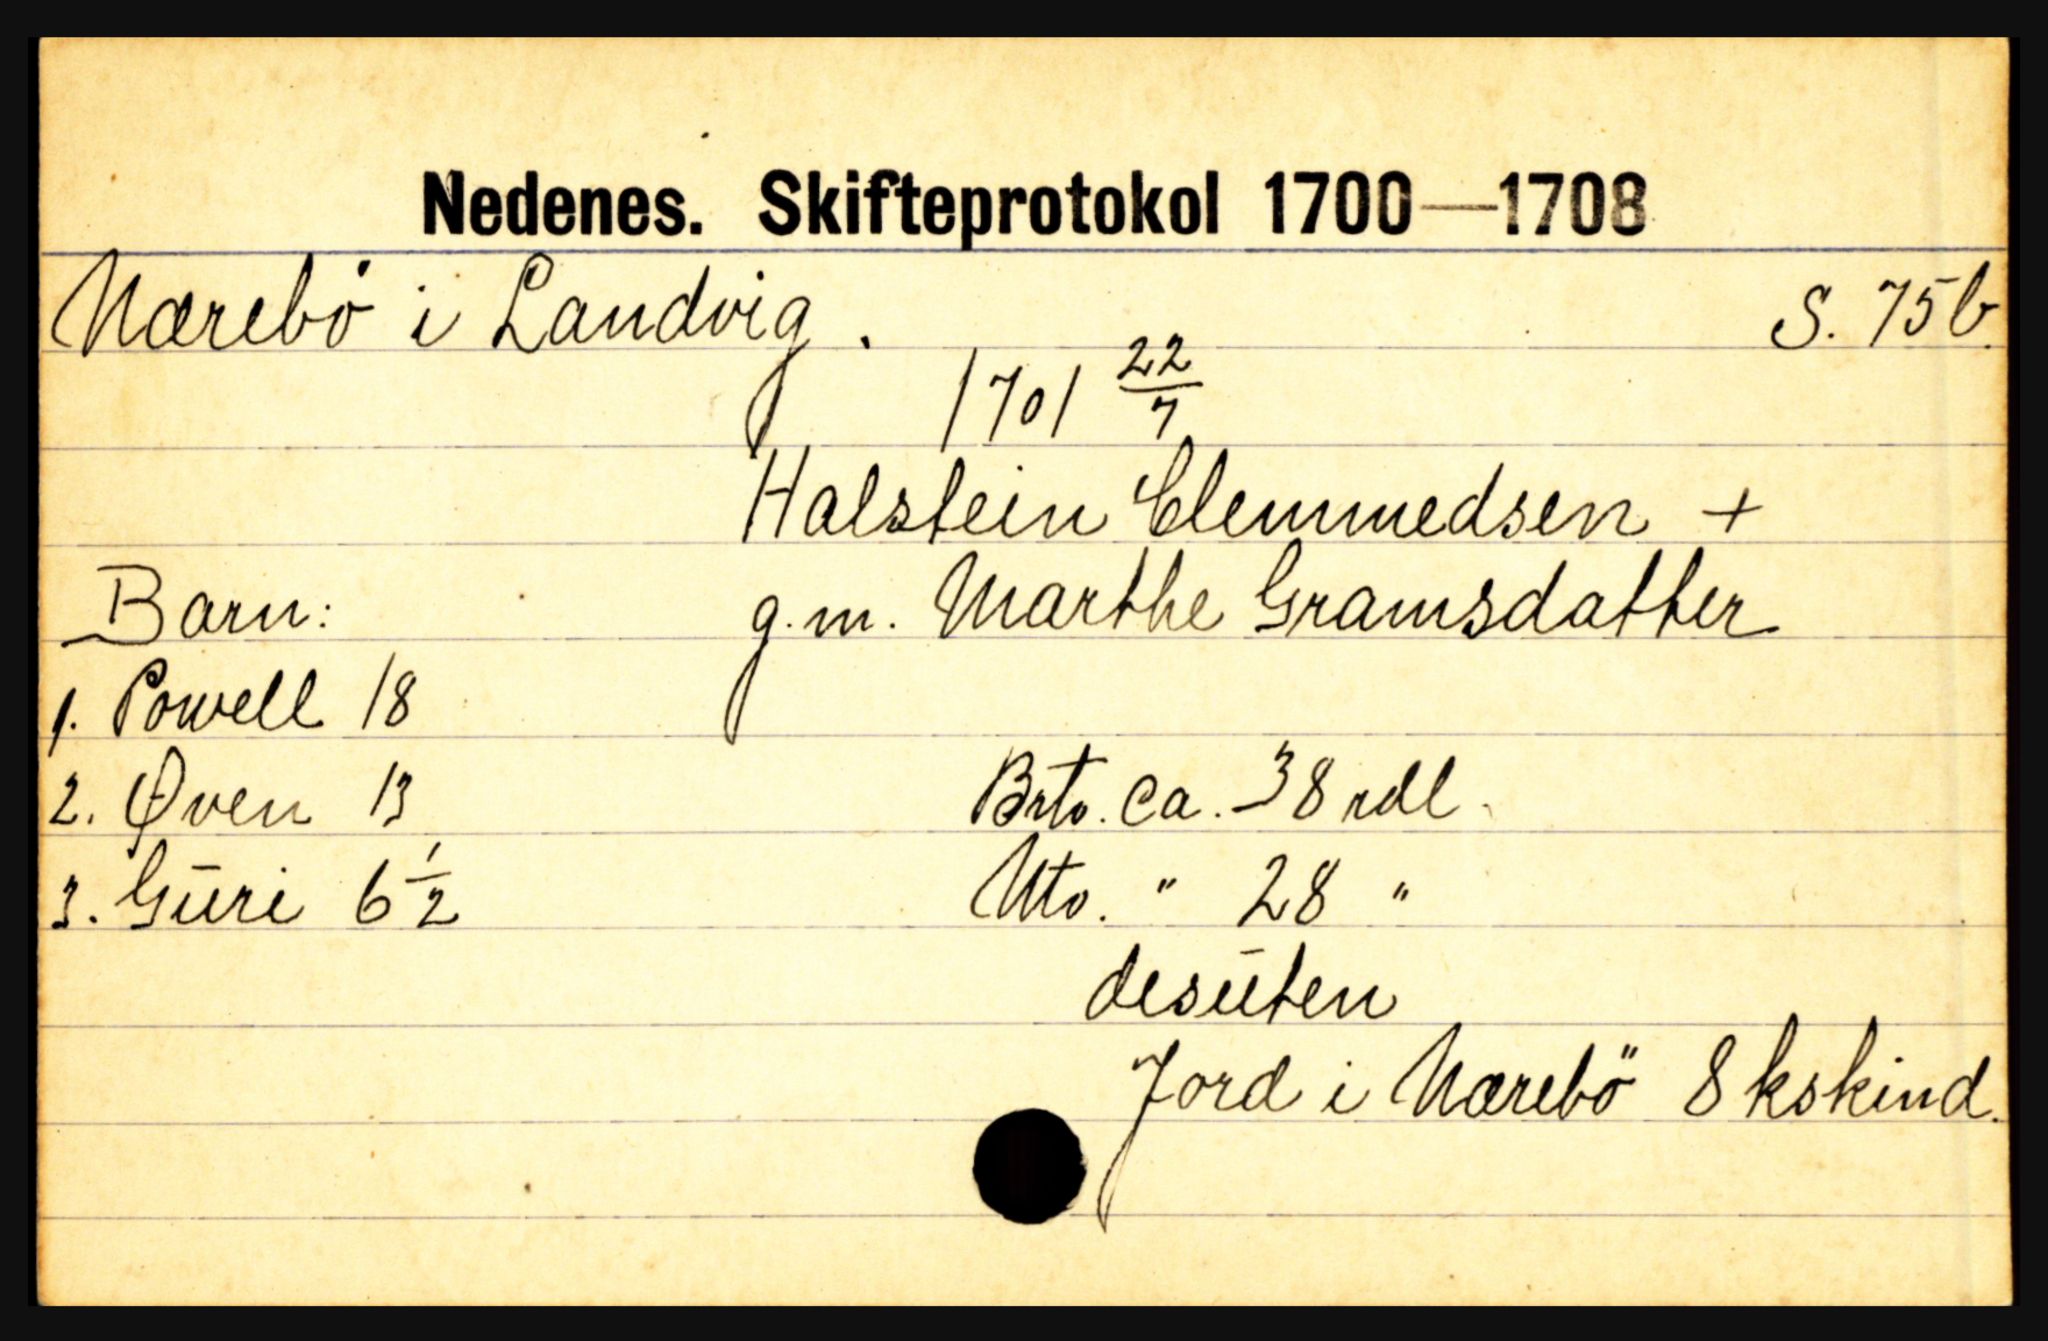 Nedenes. Skifteprotokol 1700—1708
Nærebö i Landvig. S. 75b.
1701 22/7
Halstein Clemmedsen +
Barn: g.m. Marthe Gramsdatter
1. Powell 18
2. Øven 13 Brto. ca. 38 rdl.
3. Guri 6 1/2 Nto. " 28 "
desuten
Jord i Nærebö 8 kskind.